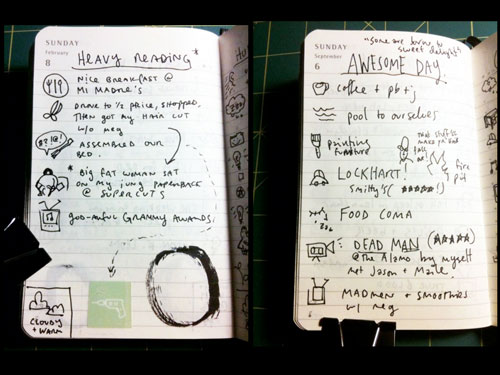 SUNDAY
February
8
HEAVY READING *
NICE BREAKFAST @
MI MADRE'S
DROVE TO 1/2 PRICE, SHOPPED.
THEN GOT MY HAIR CUT
W/O MEG
@?!@!
ASSEMBLED OUR
BED.
* BIG FAT WOMAN SAT
ON MY JUNG PAPERBACK
@ SUPERCUTS
GOD-AWFUL GRAMMY AWARDS.
CLOUDY
+ WARM
"some are born to
sweet delight"
SUNDAY
September
6
AWESOME DAY.
coffee + pb+j
pool to ourselves
painting
furniture
fire
pit
LOCKHART!
Smitty's (★★★★★!)
FOOD COMA
DEAD MAN (★★★★★)
@ The Alamo by myself
met Jason +
MADMEN + SMOOTHIES
w/ meg